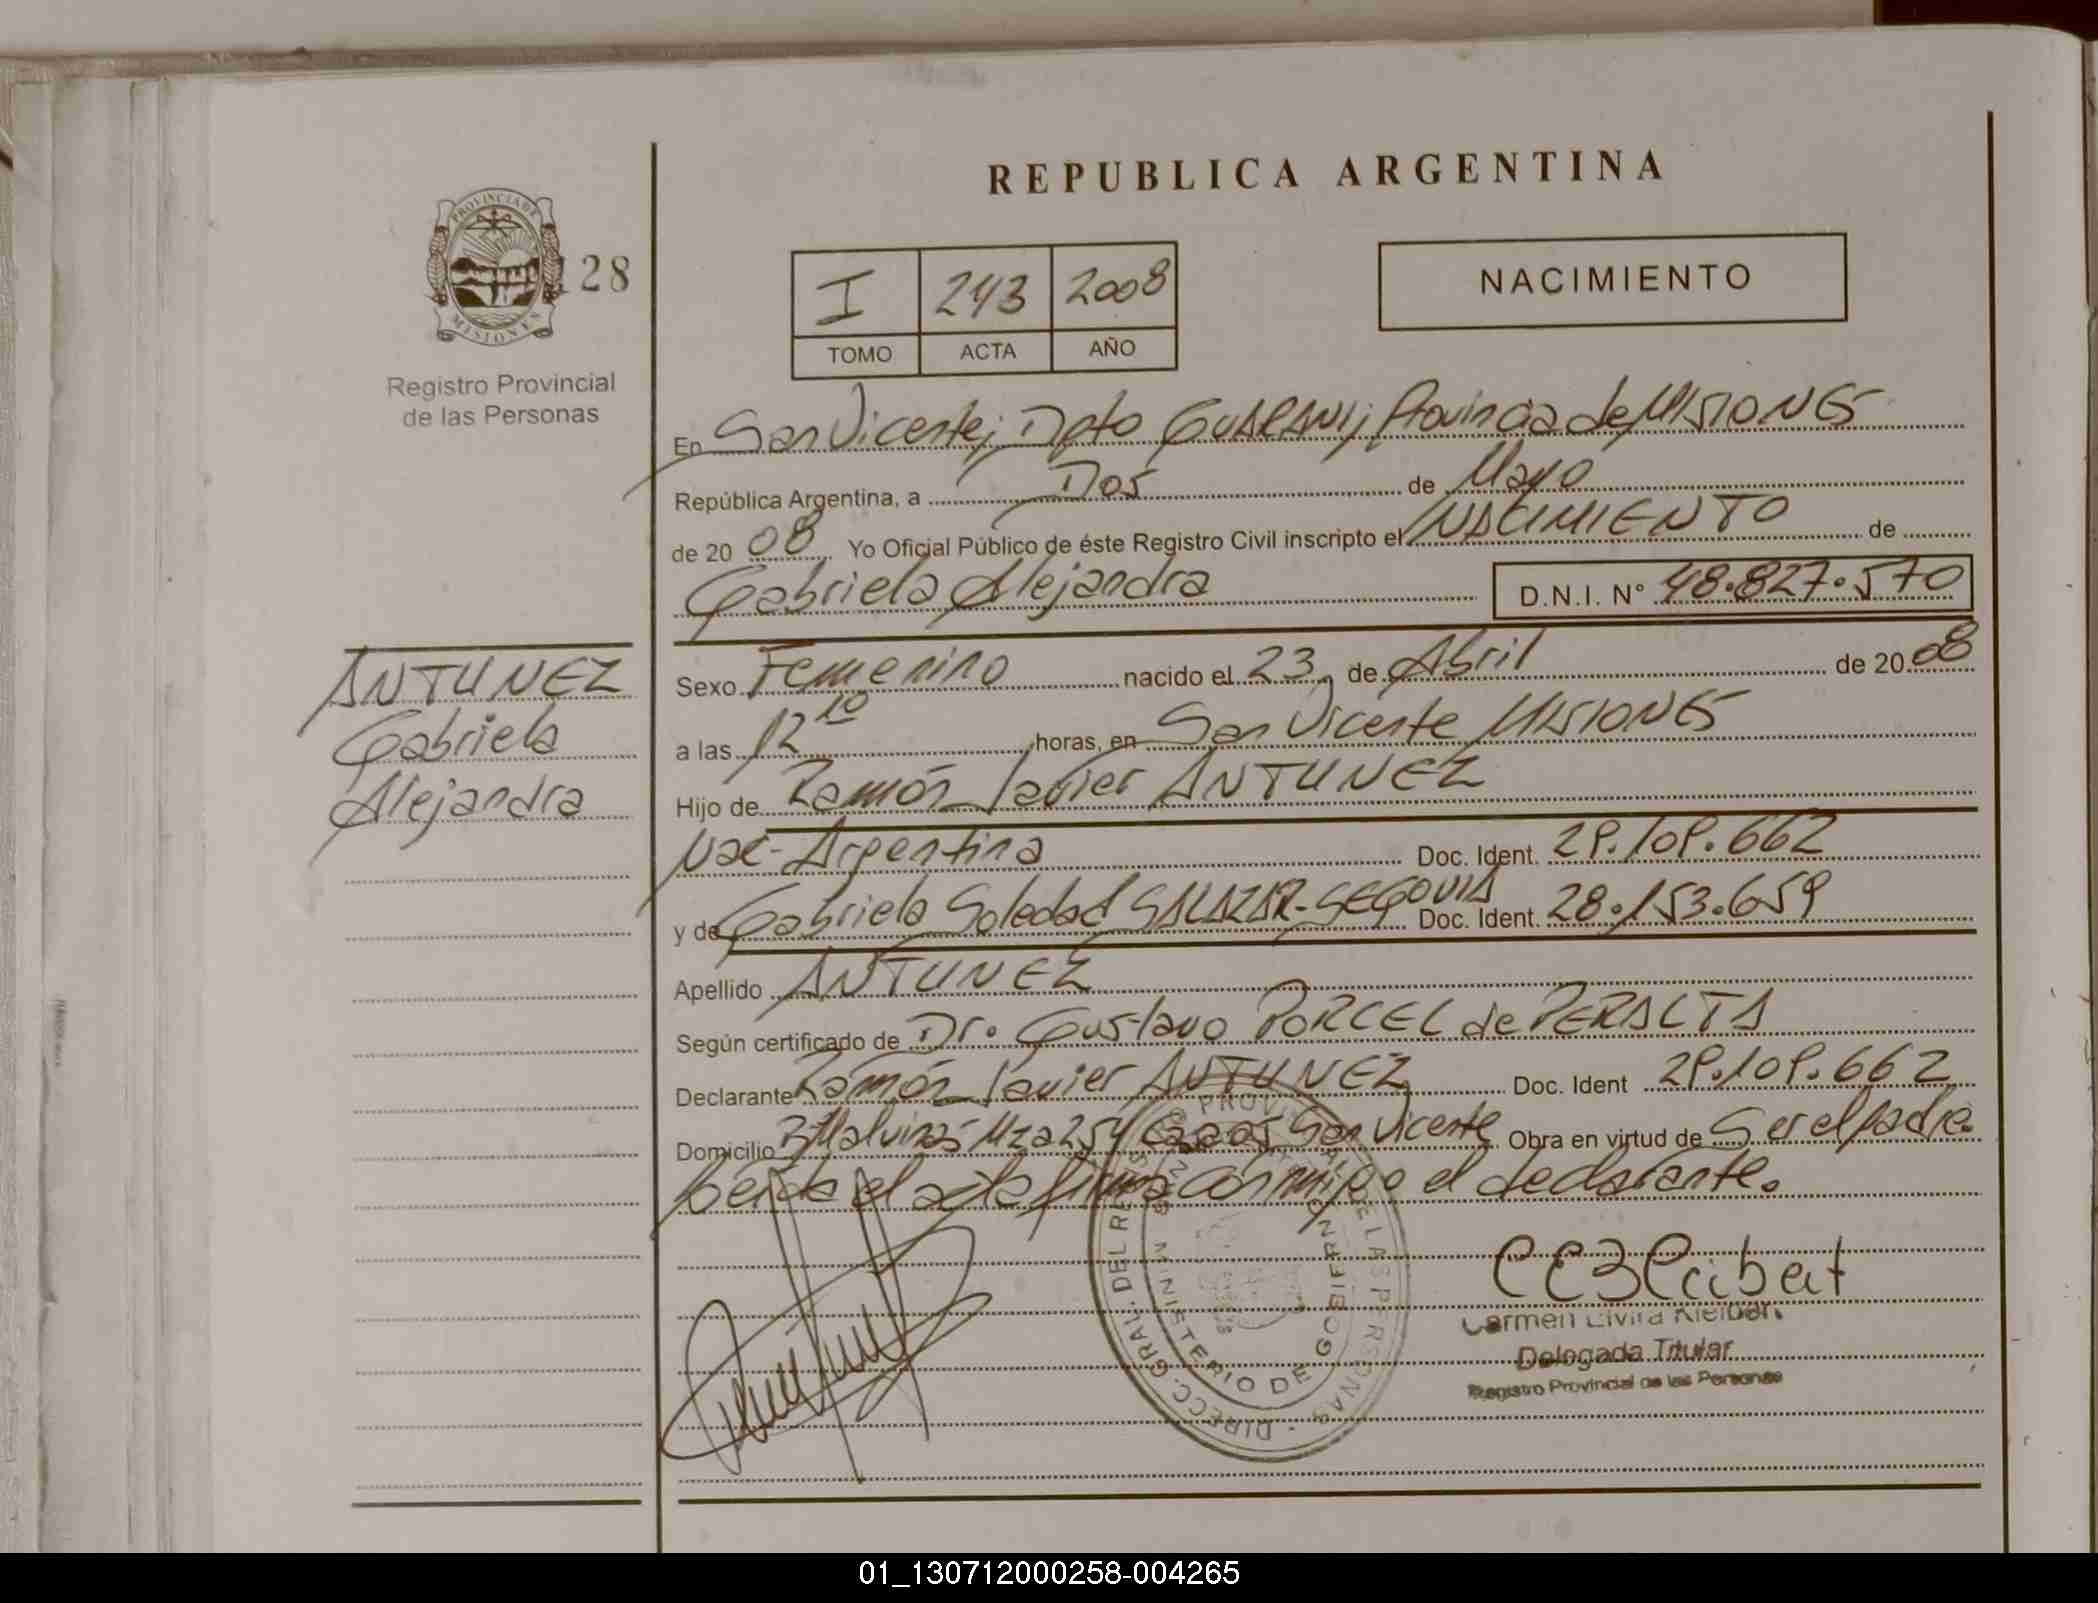 REPUBLICA ARGENTINA
PROVINCIA DE
MISIONES
128
Registro Provincial
de las Personas
I 243 2008
TOMO ACTA AÑO
NACIMIENTO
En San Vicente; Dpto GUARANI; Provincia de MISIONES
República Argentina, a Dos de Mayo
de 20 08 Yo Oficial Público de éste Registro Civil inscripto el NACIMIENTO de
Gabriela Alejandra D.N.I. N° 48.827.570
ANTUNEZ
Gabriela
Alejandra
Sexo Femenino nacido el 23 de Abril de 20 08
a las 12 10 horas, en San Vicente MISIONES
Hijo de Ramón Javier ANTUNEZ
Nac- Argentina Doc. Ident. 29.109.662
y de Gabriela Soledad SALAZAR-SEGOVIA Doc. Ident. 28.153.659
Apellido ANTUNEZ
Según certificado de Dr. Gustavo PORCEL de PERALTA
Declarante Ramón Javier ANTUNEZ Doc. Ident 29.109.662
Domicilio Malvinas Mza 254 San Vicente Obra en virtud de Ser el padre.
Leída el acta firma conmigo el declarante.
DIRECC. GRAL. DEL REG. PROV. DE LAS PERSONAS
MINISTERIO DE GOBIERNO
Carmen Elvira Kleibert
Delegada Titular
Registro Provincial de las Personas
01_130712000258-004265